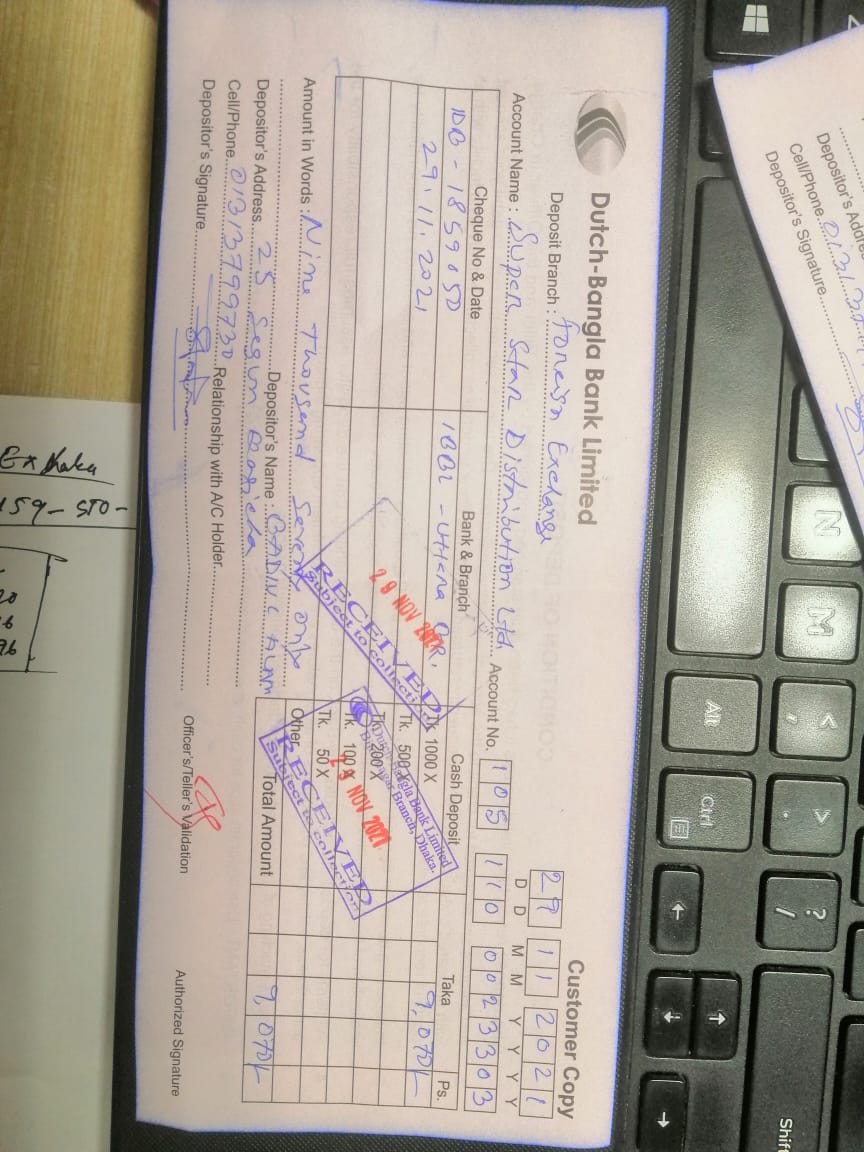 Dutch-Bangla Bank Limited
Customer Copy
Deposit Branch : Foreign Exchange
29 11 2021
D D M M Y Y Y Y
Account Name : Super Star Distribution Ltd. Account No. 105 110 0023303
Cheque No & Date Bank & Branch Cash Deposit Taka Ps.
IDB - 1859050 IBBL - Uttara BR. Tk. 1000 X 9,070/-
29.11.2021 Tk. 500 X
Tk. 200 X
Tk. 100 X
Tk. 50 X
Other
Total Amount 9,070/-
Amount in Words : Nine Thousand Seventy only
Depositor's Name : ALAM
Depositor's Address. 25 Segun Bagicha
Cell/Phone. 01313799730 Relationship with A/C Holder.
Depositor's Signature.
Officer's/Teller's Validation
Authorized Signature
28 NOV 2021
RECEIVED
Subject to collection
Dutch-Bangla Bank Limited
Branch, Dhaka.
NOV 2021
RECEIVED
Subject to collection
Cell/Phone.
Depositor's Signature
159 - STO -
N
M
Alt
Ctrl
Shift